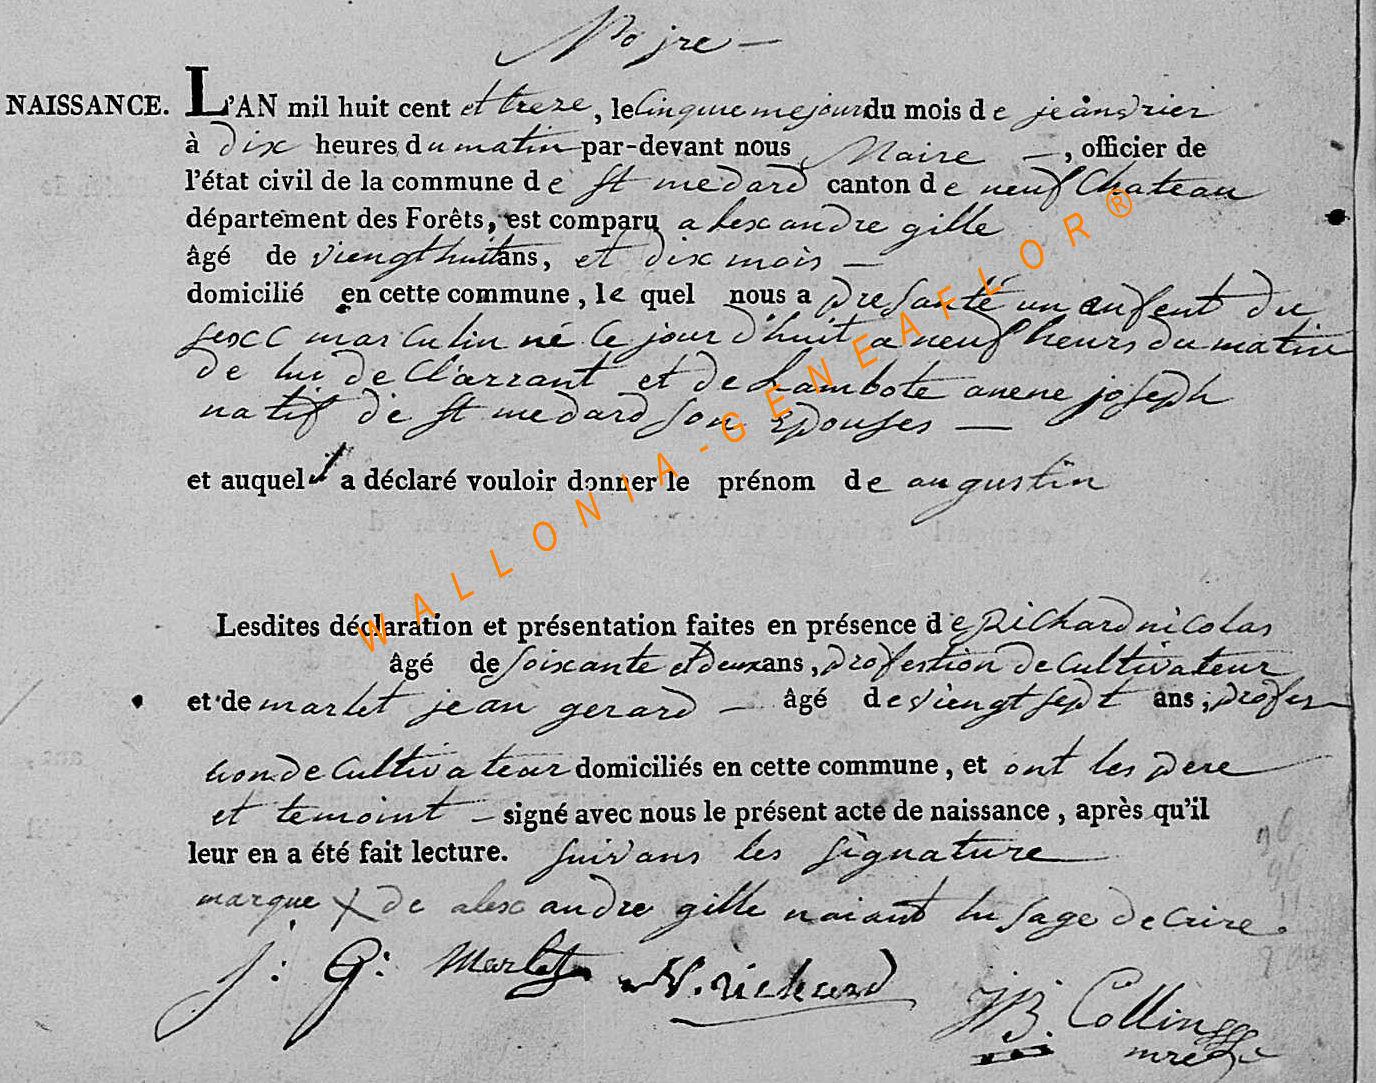 No 1re —
NAISSANCE. L'AN mil huit cent et treze, le Cinquiemejour du mois de jeanvrier
à dix heures du matin par-devant nous Maire —, officier de
l'état civil de la commune de St medard canton de neuf Chateau
département des Forêts, est comparu alexandre gille
âgé de viengt huit ans, et dix mois —
domicilié en cette commune, le quel nous a presanté un enfent du
sexc masculin né Ce jour d'huit a neuf heurs du matin
de lui de Clarrant et de Lambote anene joseph
natif de St medard son Epouses —
et auquel il a déclaré vouloir donner le prénom de augustin
Lesdites déclaration et présentation faites en présence de Richard nicolas
âgé de soixante et deux ans, profestion de Cultivateur
et de marlet jean gerard — âgé de viengt sept ans, profes
tion de Cultivateur domiciliés en cette commune, et ont les pere
et temoint — signé avec nous le présent acte de naissance, après qu'il
leur en a été fait lecture. suivans les signature
marque X de alexandre gille naiant lusage decrire.
J: G: Marlet N. richard JB. Collin
mre
WALLONIA-GENEAFLOR®